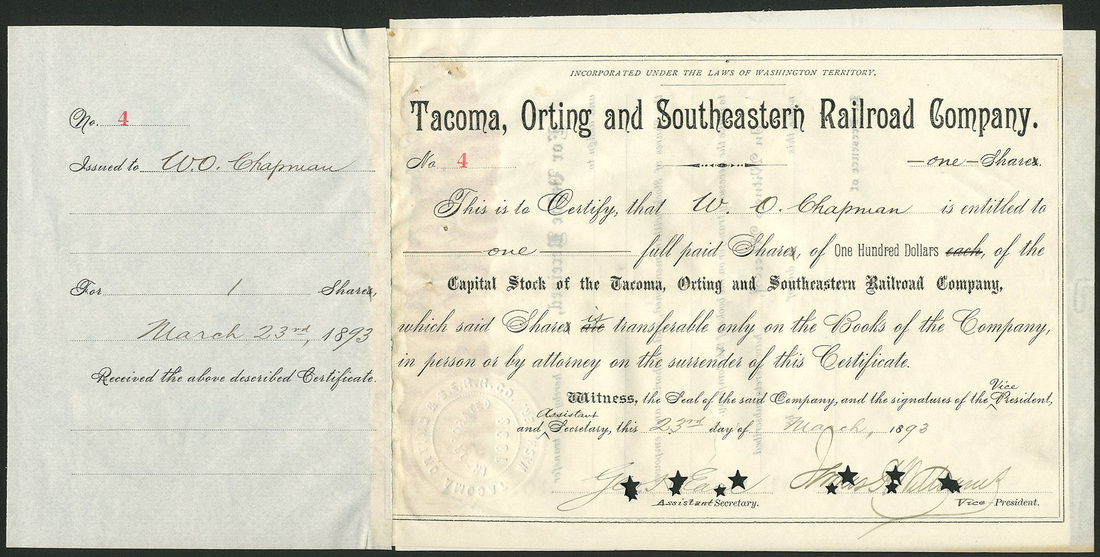 No. 4
Issued to W.O. Chapman
For 1 Shares,
March 23rd, 1893
Received the above described Certificate.
INCORPORATED UNDER THE LAWS OF WASHINGTON TERRITORY.
Tacoma, Orting and Southeastern Railroad Company.
No. 4 —one— Shares.
This is to Certify, that W. O. Chapman is entitled to
one full paid Shares, of One Hundred Dollars each, of the
Capital Stock of the Tacoma, Orting and Southeastern Railroad Company,
which said Shares are is transferable only on the Books of the Company,
in person or by attorney on the surrender of this Certificate.
Witness, the Seal of the said Company, and the signatures of the Vice President,
and Assistant Secretary, this 23rd day of March, 1893
Assistant Secretary. Vice President.